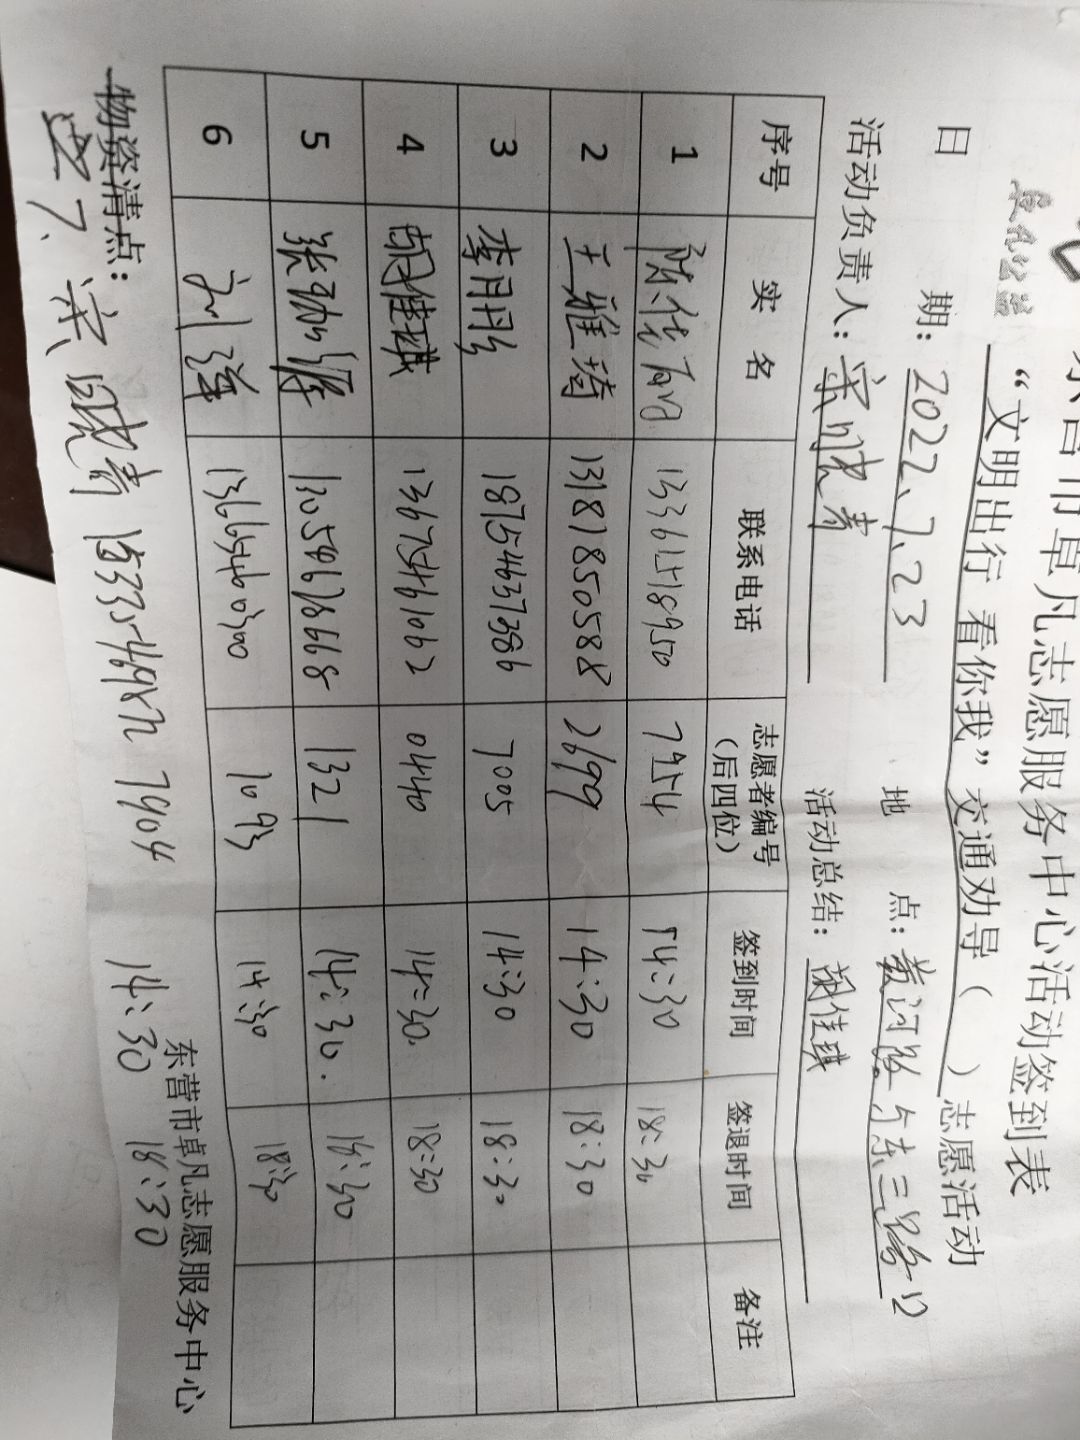 卓凡公益
东营市卓凡志愿服务中心活动签到表
“文明出行 看你我”交通劝导（ ）志愿活动
日 期：2022、7、23 地 点：黄河路与东三路口
活动负责人：宋晓青 活动总结：胡佳琪
序号 实 名 联系电话 志愿者编号（后四位） 签到时间 签退时间 备注
1 13361518950 7954 14:30 18:30
2 王雅琦 13181850588 2699 14:30 18:30
3 李丹丹 18754637386 7005 14:30 18:30
4 胡佳琪 13675461062 0440 14:30. 18:30
5 1321 14:30. 18:30
6 刘洋 13665460300 1093 14:30 18:30
物资清点： 东营市卓凡志愿服务中心
7、宋晓青 7904 14:30 18:30